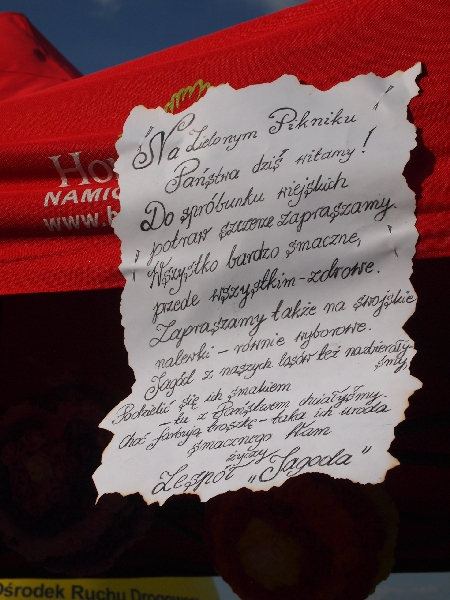 "Na Zielonym Pikniku
Państwa dziś witamy!
Do spróbunku wiejskich
potraw szczerze zapraszamy.
Wszystko bardzo smaczne,
przede wszystkim - zdrowe.
Zapraszamy także na swojskie
nalewki - równie wyborowe.
Jagód z naszych lasów też nazbierały
śmy,
Podzielić się ich smakiem
- tu z Państwem chciałyśmy.
Choć farbują troszkę - taka ich uroda
smacznego Wam
życzy
Zespół "Jagoda"
Ho
NAMIO
www.h
Ośrodek Ruchu Drogowe